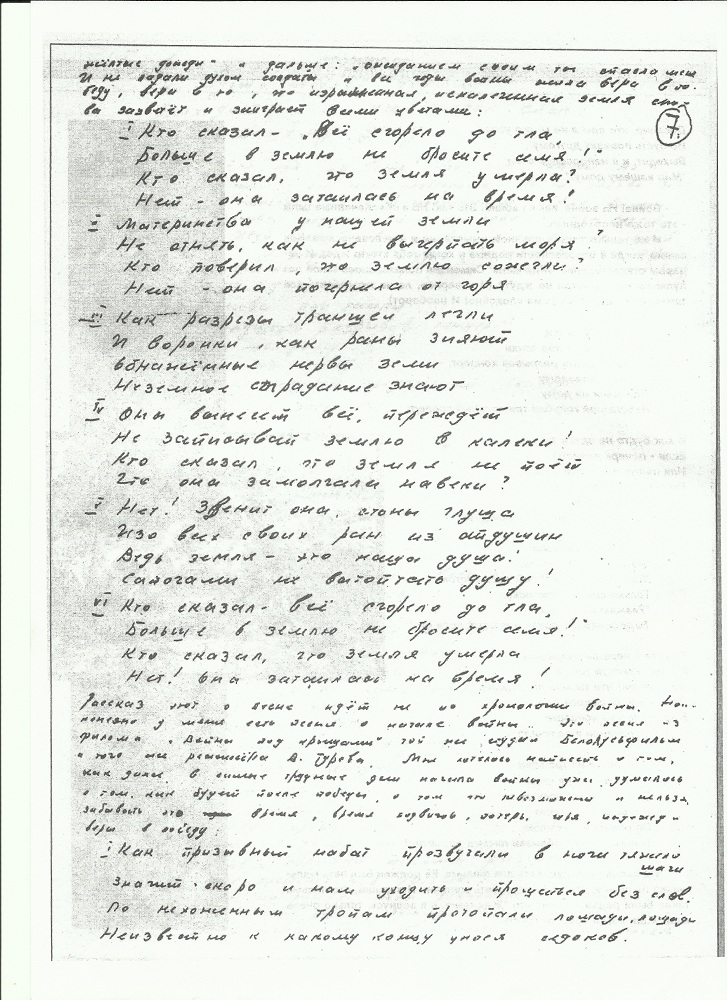 жёлтые дожди" и дальше: „ожиданием своим ты спасла меня
И не падали духом солдаты и все годы войны жила вера в по-
беду, вера в то, что израненная, искалеченная земля сно-
ва зазвучит и заиграет всеми цветами:
7.
I Кто сказал – „Всё сгорело до тла
Больше в землю не бросите семя!"
Кто сказал, что земля умерла?
Нет – она затаилась на время!
II Материнства у нашей земли
Не отнять, как не вычерпать моря,
Кто поверил, что землю сожгли?
Нет – она почернела от горя
III Как разрезы траншеи легли
И воронки, как раны зияют
Обнажённые нервы земли
Неземное страдание знают
IV Она вынесет всё, переждёт
Не записывай землю в калеки!
Кто сказал, что земля не поёт
Что она замолчала навеки?
V Нет! Звенит она, стоны глуша
Изо всех своих ран из отдушин
Ведь земля – это наша душа!
Сапогами не вытоптать душу!
VI Кто сказал – всё сгорело до тла,
Больше в землю не бросите семя!"
Кто сказал, что земля умерла
Нет! Она затаилась на время!
Рассказ мой о войне идёт не по хронологии войны.
у меня есть песня о начале войны. Это песня из
фильма „Войны под крышами" той же студии Беларусьфильм
и того же режиссёра В. Турова. Мне хотелось написать о том,
как даже в самые трудные дни начала войны уже думалось
о том, как будет после победы, о том что невозможно и нельзя
забывать это время, время подвигов, потерь, горя, надежд и
веры в победу:
I Как призывный набат прозвучали в ночи тяжело
шаги
Значит – скоро и нам уходить и прощаться без слов.
По нехоженным тропам протопали лошади, лошади
Неизвестно к какому концу унося седоков.